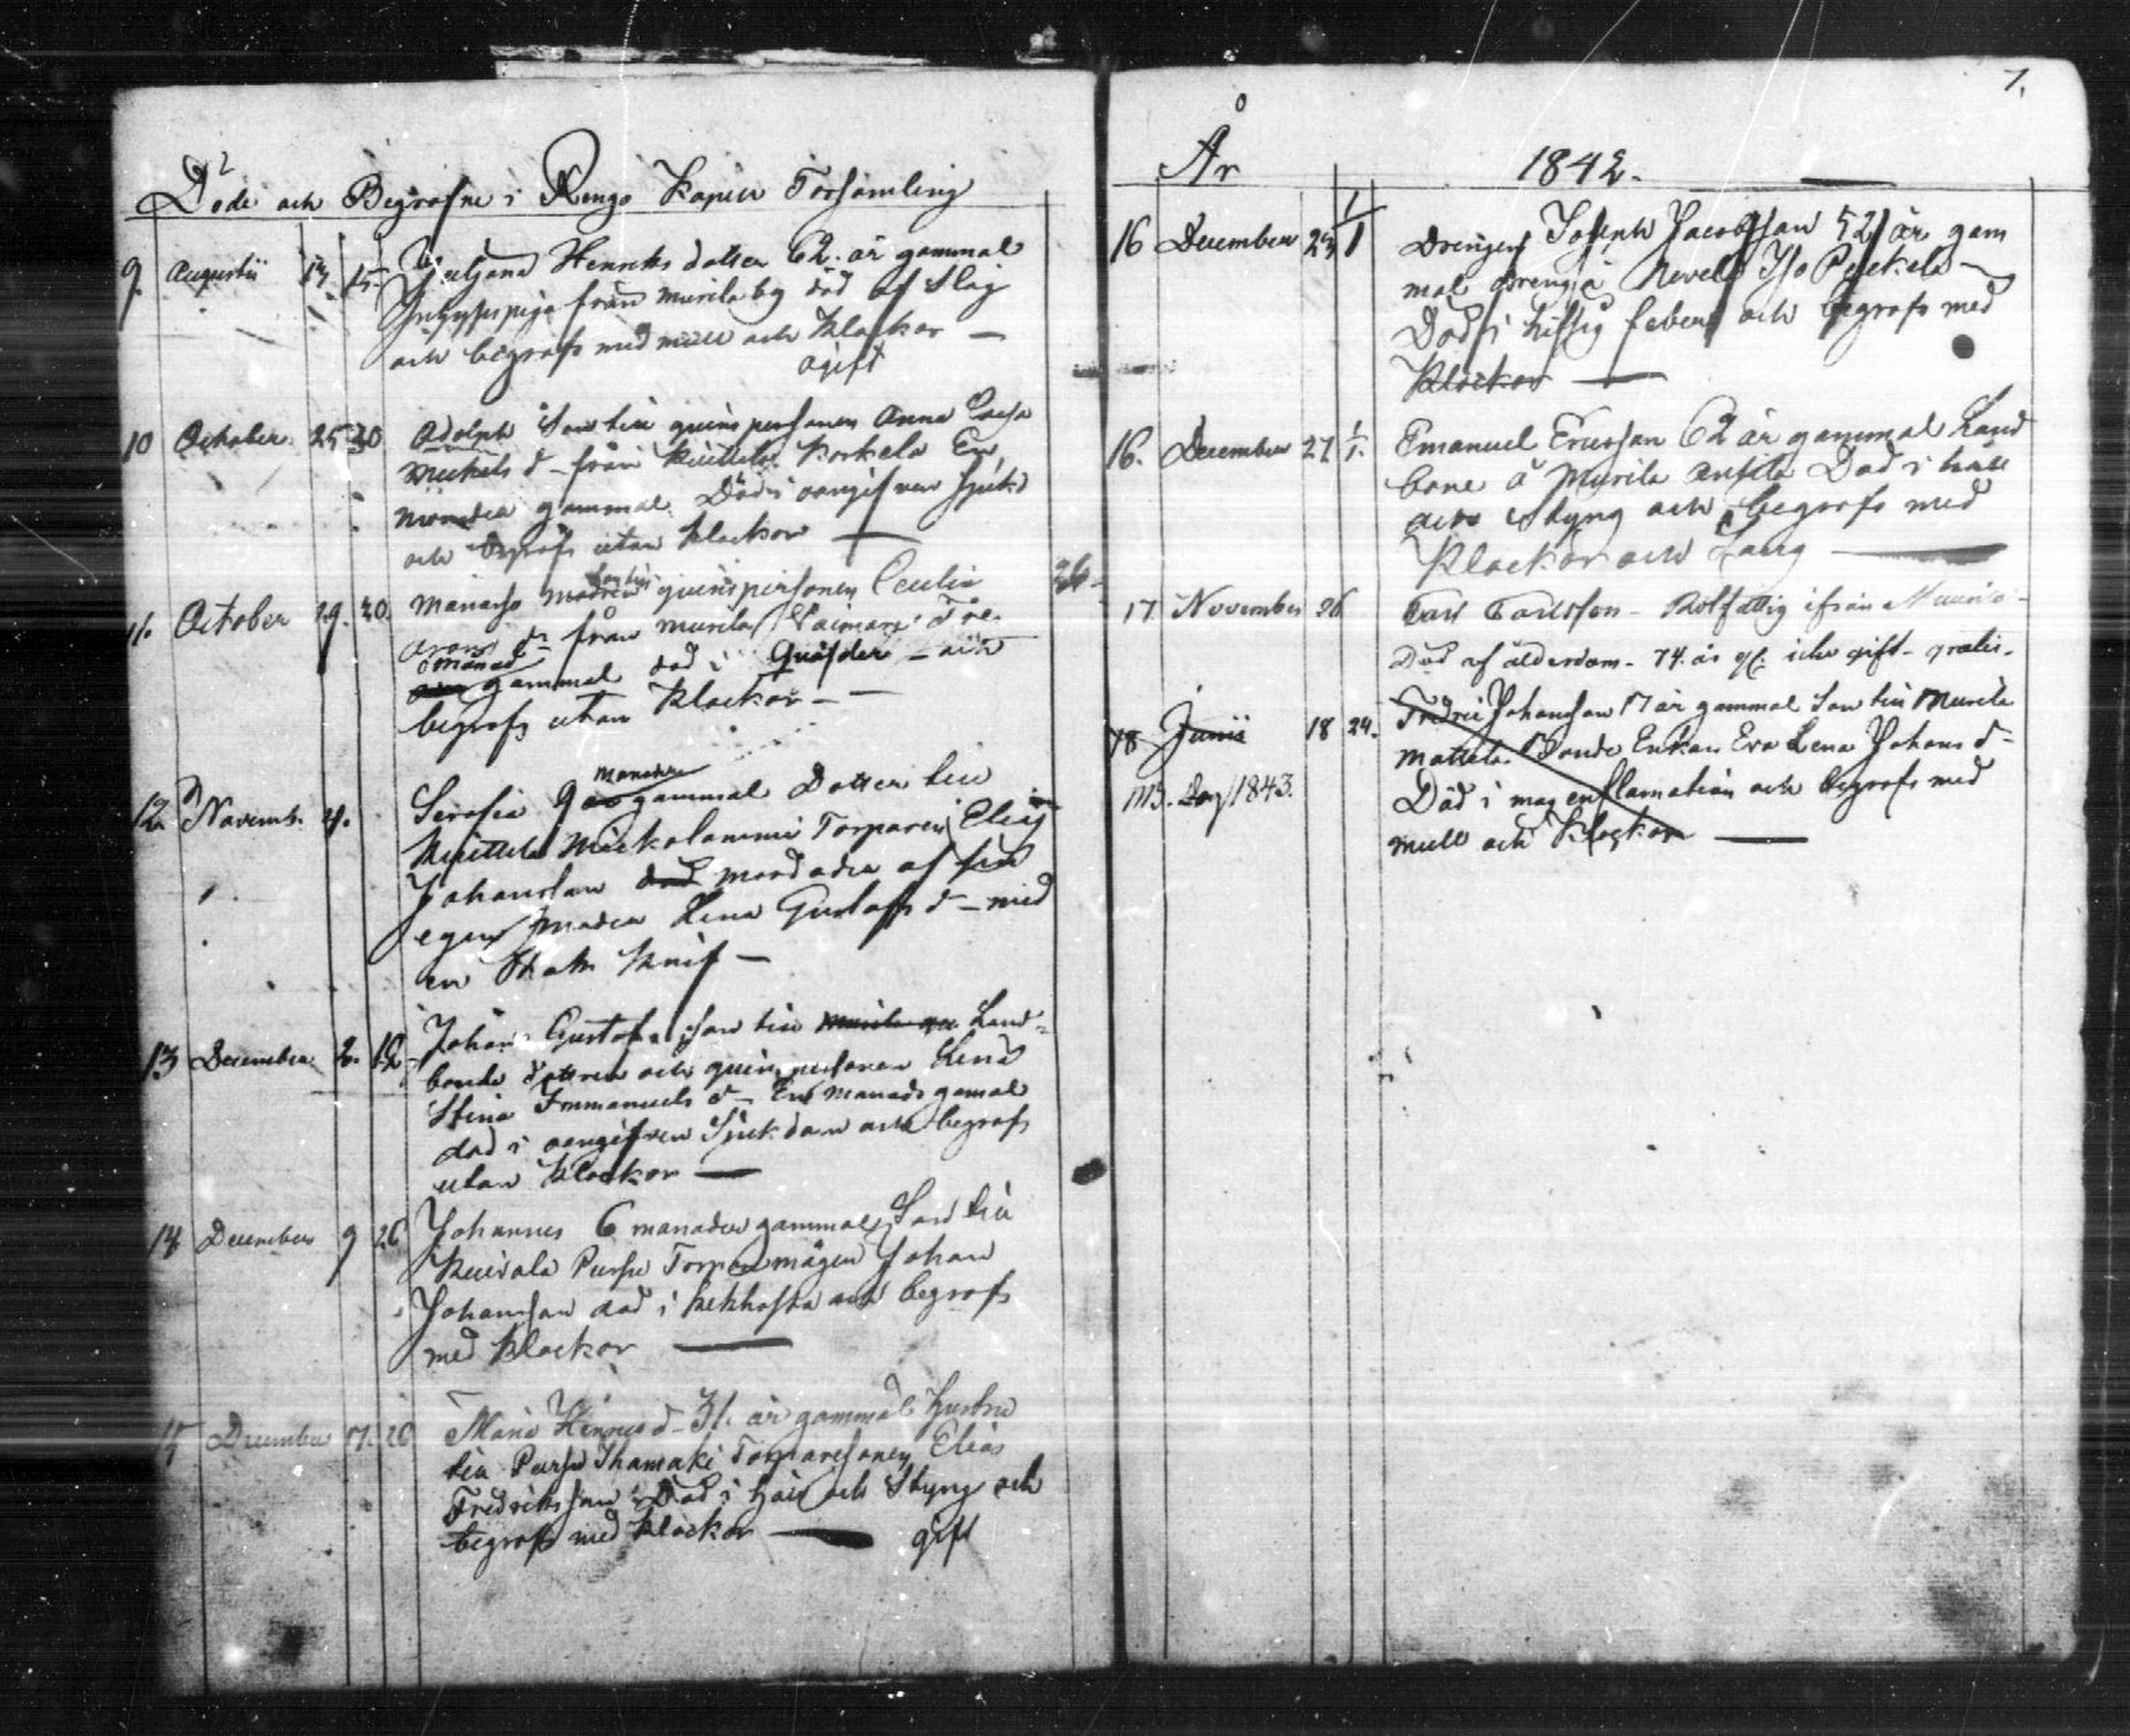 Döde och Begrafne i Rengo Kapell Församling
9. Augustii 13 15. Juljana Henriks dotter 62. år gammal
från Murila by död af Slag
och begrafs med mull och klockor —
ogift
10 October 25 30 Adolph Son till qvinspersonen Anna Caisa
Mickels d– från Kuittila Korkela En
gammal Död i oangifven sjukd
och begrafs utan klockor —
11. October 19. 30. Manasse Son till qvinspersonen Cecilia
d– från Murila
månad gammal död i och
begrafs utan klockor —
12. Novemb. 4. Serafia 9 månader gammal Dotter till
Kuittila Torparen Elias
Johansson död mördades af sin
egen moder Lena Gustafs d– med
en knif —
13 December 2. 12 Johan Gustaf, son till Murila Land-
bonde dottren och qvinspersonen Lena
Stina Immanuels d– En månads gamal
död i oangifven Sjukdom och begrafs
utan klockor —
14 December 9 26 Johannes 6 månader gammal, Son till
Kuivala Pursu Torpare mågen Johan
Johansson död i kikhosta och begrafs
med klockor —
15 December 17. 26 Maria Henrics d– 31. år gammal hustru
till Pursu Torparesonen Elias
Fredriksson Död i håll och Styng och
begrafs med klockor — gift
7.
År 1842.
16 December 23 1/1 Drengen Joseph Jacobsson 52 år gam
mal dreng å Nevilä Iso
Död i hitsig feber och begrafs med
Klockor —
16. December 27 1/1. Emanuel Ericsson 62 år gammal Land
bone å Murila Antila Död i håll
och Styng och begrafs med
Klockor och Sång —
17 November 26 Carl Carlsson – Rotfattig ifrån Murila –
Död af ålderdom – 74. år gl. icke gift – gratis.
18 Junii 18 24. Fredric Johansson 17 år gammal Son till Murila
Mattila Bonde Enkan Eva Lena Johans d–
1843. Död i mag enflamation och begrafs med
mull och Klockor —